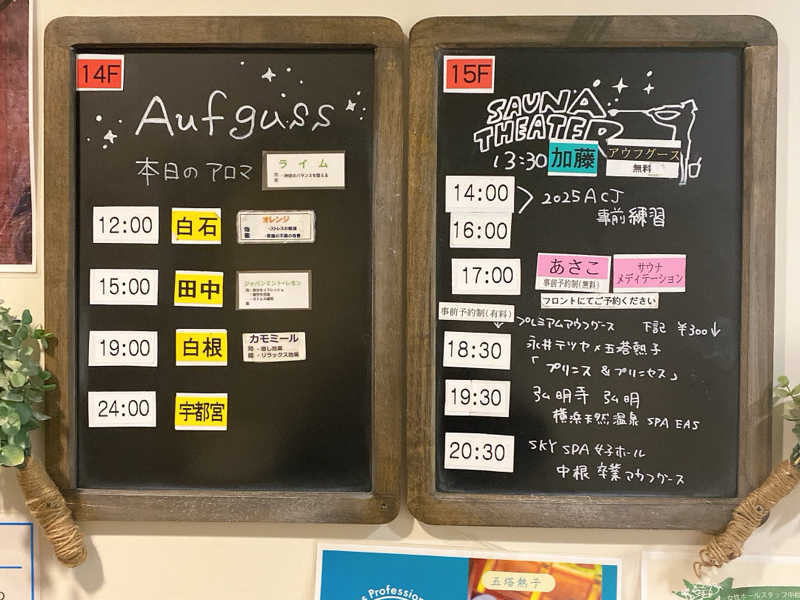 14F
Aufguss
本日のアロマ ライム
12:00 白石 オレンジ
15:00 田中 ジャパンミント・レモン
19:00 白根 カモミール
・癒し効果
・リラックス効果
24:00 宇都宮
15F
SAUNA
THEATER
13:30 加藤 アウフグース
無料
14:00
16:00
2025ACJ
事前練習
17:00 あさこ サウナ
メディテーション
事前予約制(無料)
フロントにてご予約ください
事前予約制(有料)
プレミアムアウフグース 下記 ¥300
18:30 永井テツヤ×五塔熱子
「プリンス&プリンセス」
19:30 弘明寺 弘明
横浜天然温泉 SPA EAS
20:30 SKY SPA 女子ホール
中根 卒業アウフグース
Professional
五塔熱子
女性ホールスタッフ中根